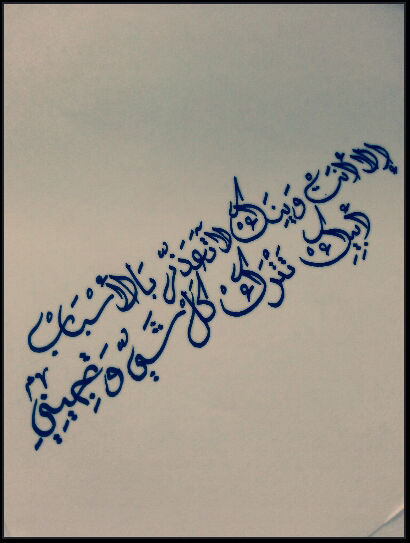 إلا أنت وينك لا تعذر بالأسباب
أبيك تترك كل شي وتجيني